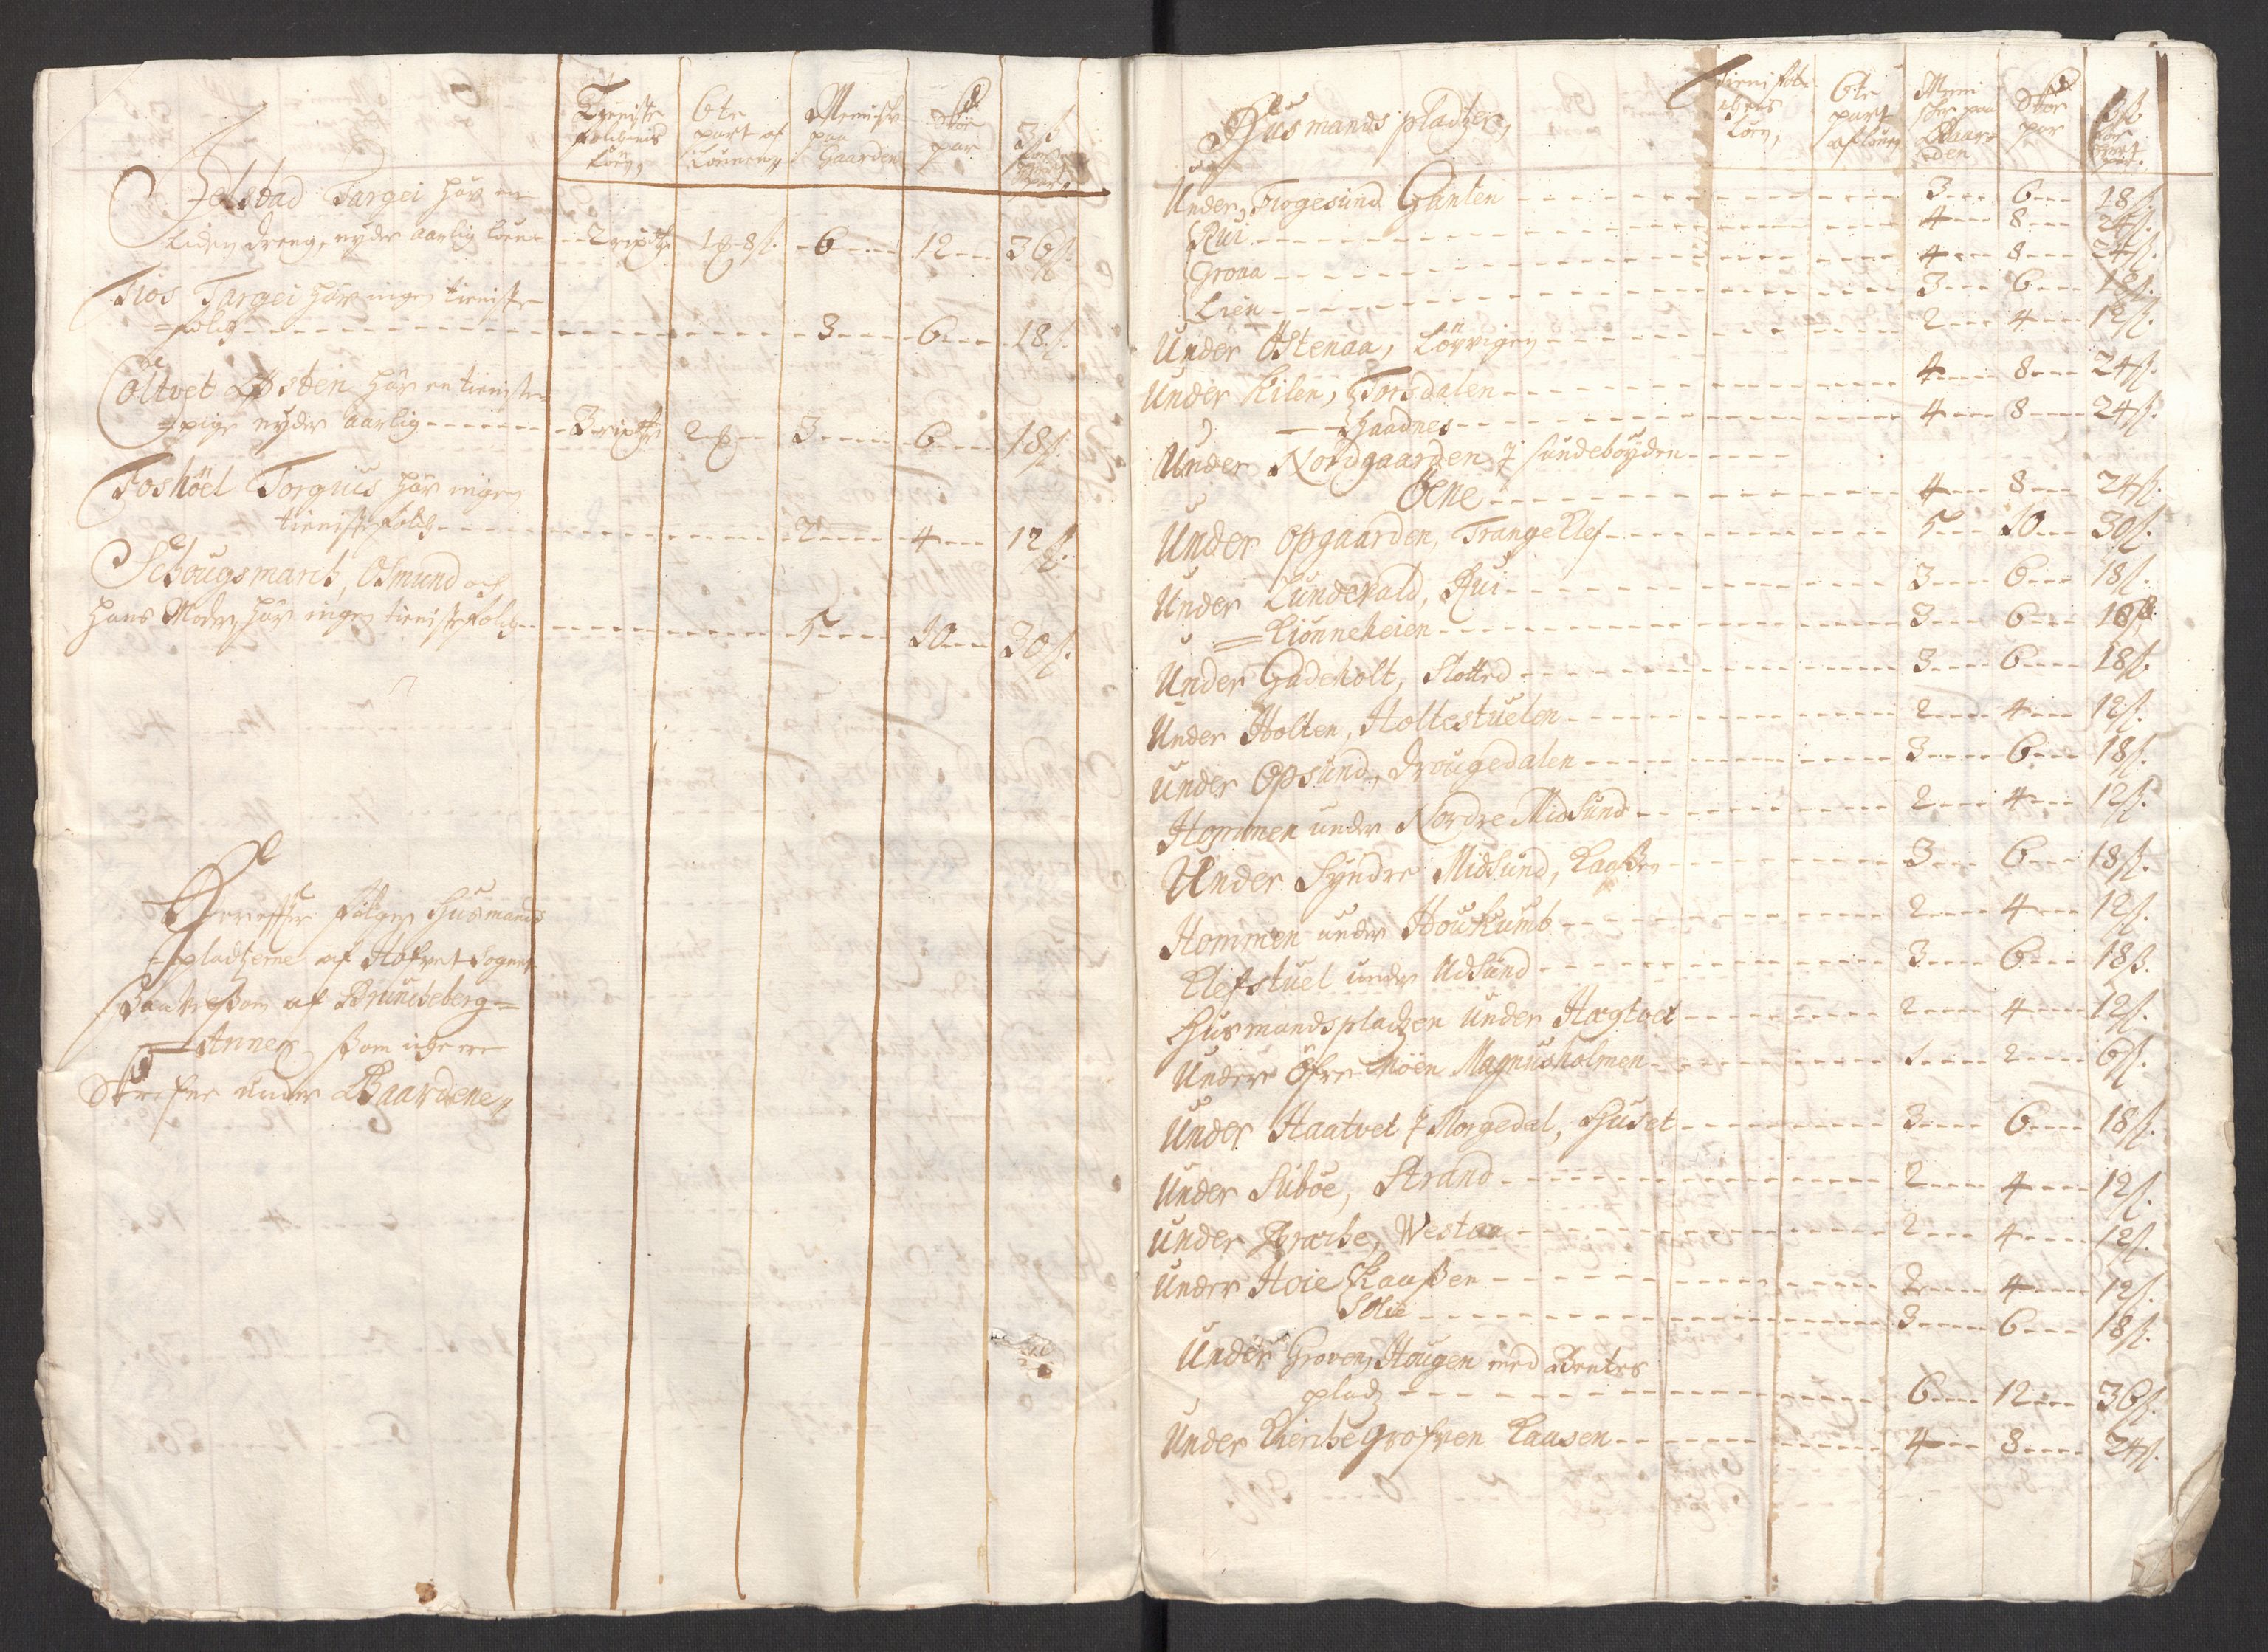 Tieniste folchenis Löen,
6te part af Lönnen
Mennisker paa Gaarden
Skoe par
3 ß for hvert par
Jolstad Targei har en
liden dreng, nyder aarlig Löen 2 ripdlr 1 8 ß 6 12 36 ß.
Fios Targei har ingen tieniste
=folch 3 6 18 ß.
Coltvet Østen har en tieniste
=pige nyder aarlig 3 ripdlr 2 3 6 18 ß.
Foshöel Torgius har ingen
tienistefolch 2 4 12 ß.
Schougsmarch, Osmund och
hans Moder har ingen tienistefolch 5 10 30 ß.
Herefter følger Huusmands
=pladtzerne af Hofvet Sognet
saavelsom af Bruncheberg=
=Annex som icke ere
Skrefne under Gaardene
Huusmands pladtzer,
Tienistefolchens Löen,
6te part af Löen
Mennischer paa Gaarden
Skoe par
3 ß for hvert par
Under Trogesund Ganten 3 6 18 ß.
Rui 4 8 24 ß.
Groaa 4 8 24 ß.
Lien 3 6 18 ß.
Under Østenaa, Lövvigen 2 4 12 ß.
Under Kilen, Torsdalen 4 8 24 ß.
Haadnes 4 8 24 ß.
Under Nordgaarden i Sundebøyden
Oene 4 8 24 ß.
Under Opgaarden, Trangeklef 5 10 30 ß.
Under Lundevald, Rui 3 6 18 ß.
=Kiönneheien 3 6 18 ß.
Under Gadeholt, Slotted 3 6 18 ß.
Under Holten, Holtestuelen 2 4 12 ß.
Under Opsund, Drougedalen 3 6 18 ß.
Hommen under Nordre Midsund 2 4 12 ß.
Under Syndre Midsund, Kaasen 3 6 18 ß.
Hommen under Houkumb 2 4 12 ß.
Klefstuel under Udsund 3 6 18 ß.
Huusmandspladzen under Hogtvet 2 4 12 ß.
Under Öfre Möen Magnusholmen 1 2 6 ß.
Under Haatvet i Morgedal, Huset 3 6 18 ß.
Under Siiboe, Strand 2 4 12 ß.
Under Brache, Westaa 2 4 12 ß.
Under Hoie Kaasen 2 4 12 ß.
Solie 3 6 18 ß.
Under Groven, Hougen med Bentes
plads 6 12 36 ß.
Under Kierchegrofven Kaasen 4 8 24 ß.